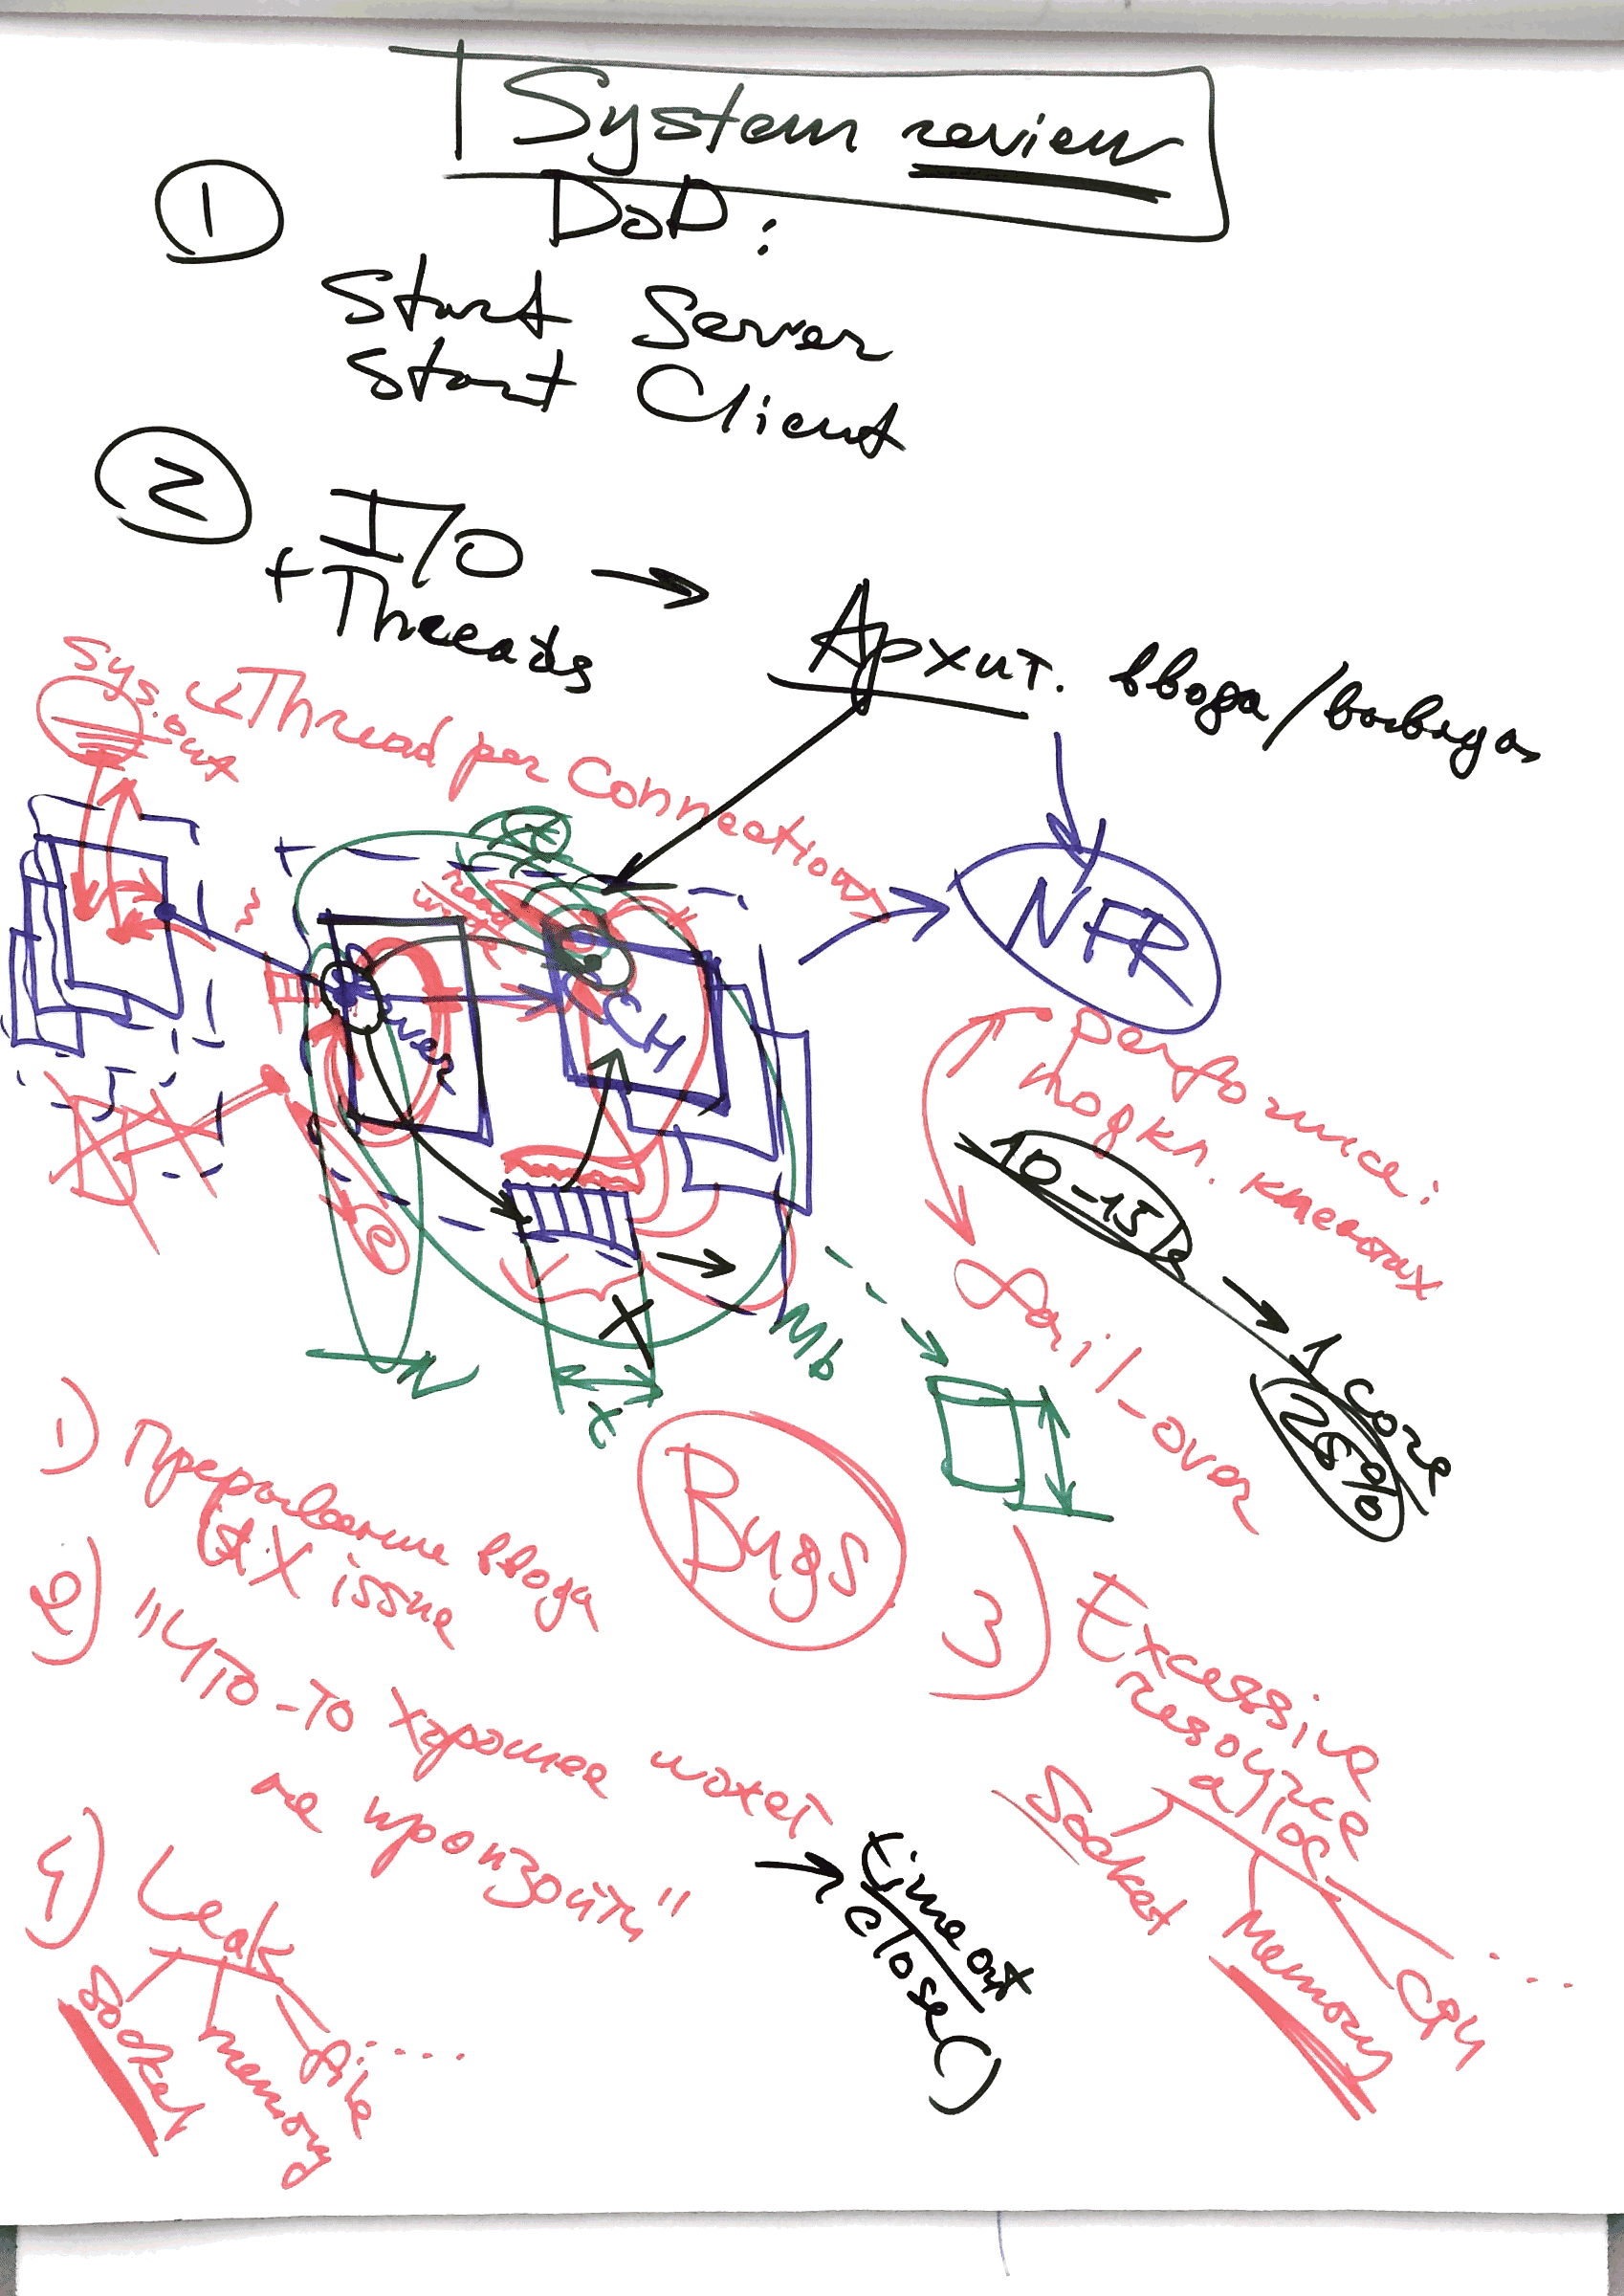 System review
①
DoD:
Start Server
Start Client
②
I/O
+ Threads
→
Архит. ввода/вывода
Sys.out
Thread per Connection
NFR
read
CH
Performance:
подкл. клиентах
10-15k
→
1 core
25%
fail-over
N
X
x
Mb
Bugs
1) Прерывание ввода
UX issue
2) "Что-то хорошее может
не произойти"
→ timeout
close()
3) Excessive
resource
alloc
Socket
Memory
CPU
....
4) Leak
Socket
memory
file
.....